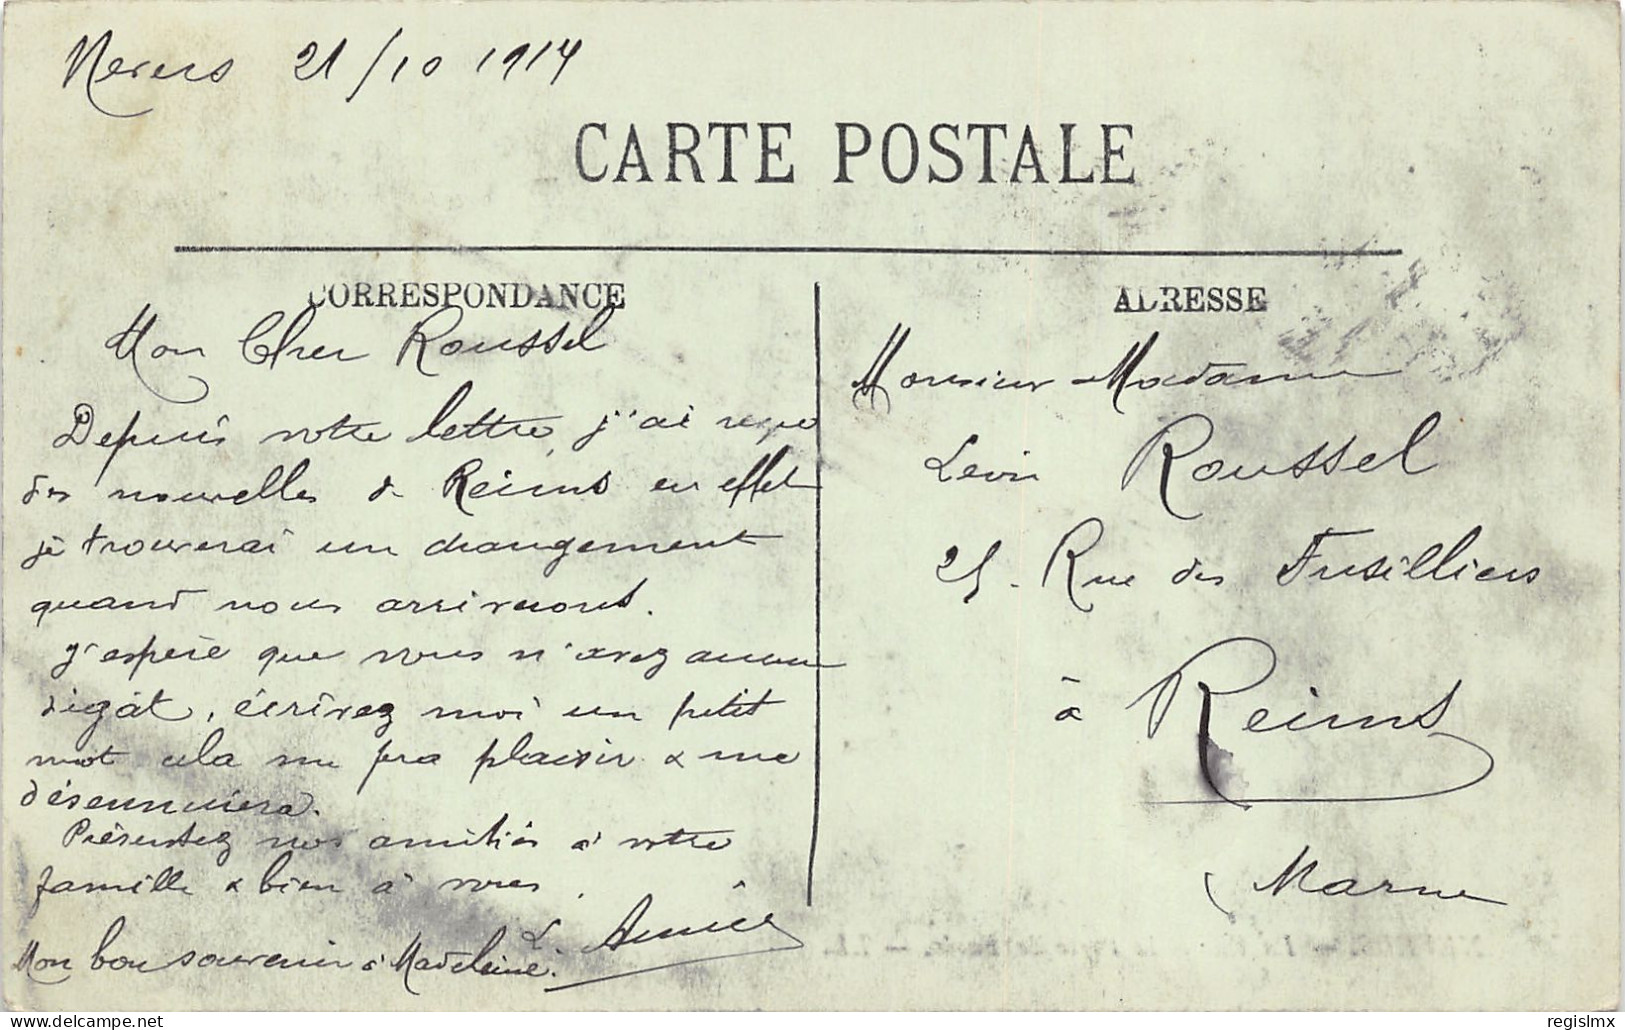 Nevers 21/10 1914
CARTE POSTALE
CORRESPONDANCE
Mon Cher Roussel
Depuis votre lettre, j'ai reçu
des nouvelles de Reims en effet
je trouverai un changement
quand nous arriverons.
J'espère que vous n'avez aucun
dégât, écrivez moi un petit
mot cela me fera plaisir & me
désennuiera.
Présentez nos amitiés à votre
famille & bien à vous.
L.
Mon bon souvenir à Madeleine.
ADRESSE
Monsieur Madame
Roussel
25. Rue des Fusilliers
à Reims
Marne
regislmx
delcampe.net